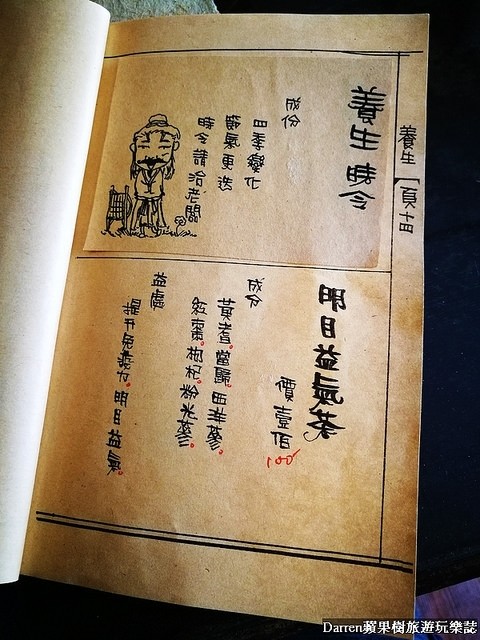 養生 頁十四
養生時令
成份
四季變化
節氣更迭
時令請洽老闆
明目益氣茶
價壹佰
100
成分
黃耆。當歸。西洋蔘。
紅棗。枸杞。粉光蔘。
益處
提升免疫力。明目益氣。
Darren蘋果樹旅遊玩樂誌